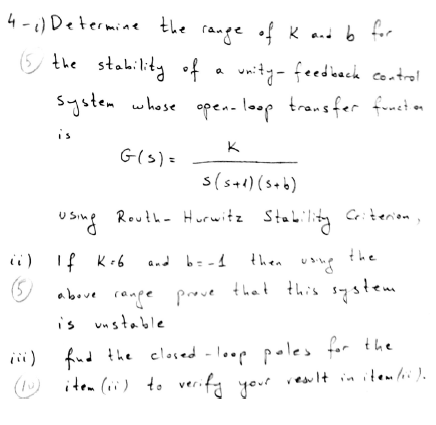 4-i) Determine the range of K and b for
(5) the stability of a unity-feedback control
system whose open-loop transfer function
is
G(s) = K / s(s+1)(s+b)
using Routh-Hurwitz Stability Criterion,
ii) If K=6 and b=-1 then using the
(5) above range prove that this system
is unstable
iii) find the closed-loop poles for the
(10) item (ii) to verify your result in item (ii).